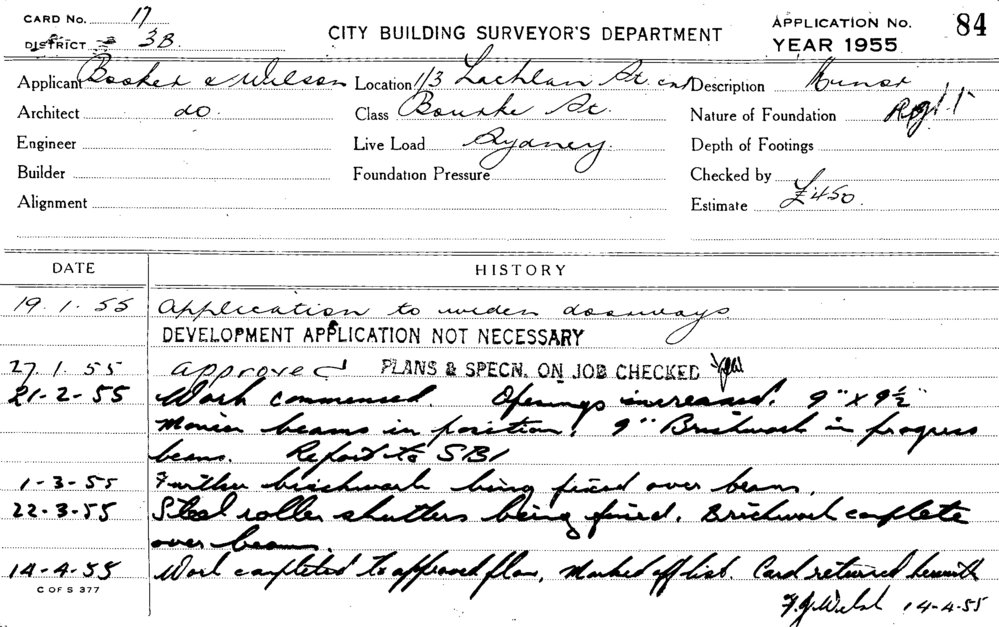 CARD No. 17
DISTRICT 3B.
CITY BUILDING SURVEYOR'S DEPARTMENT
APPLICATION No. 84
YEAR 1955
Applicant Booker & Wilson Location 1/3 Lachlan St. cnr Description Minor
Architect do. Class Bourke St. Nature of Foundation
Engineer Live Load Sydney. Depth of Footings
Builder Foundation Pressure Checked by
Alignment Estimate £450.
DATE HISTORY
19.1.55 Application to widen doorways
DEVELOPMENT APPLICATION NOT NECESSARY
27.1.55 approved PLANS & SPECN. ON JOB CHECKED
21-2-55 Work commenced. Openings increased. 9" x 9½"
Monier beams in position. 9" Brickwork in progress
beams. Report to SBI
1-3-55 Further brickwork being fixed over beams.
22-3-55 Steel roller shutters being fixed. Brickwork complete
over beams.
14-4-55 Work completed to approved plan, Marked off list. Card returned herewith
C OF S 377
F.J. Welsh 14-4-55